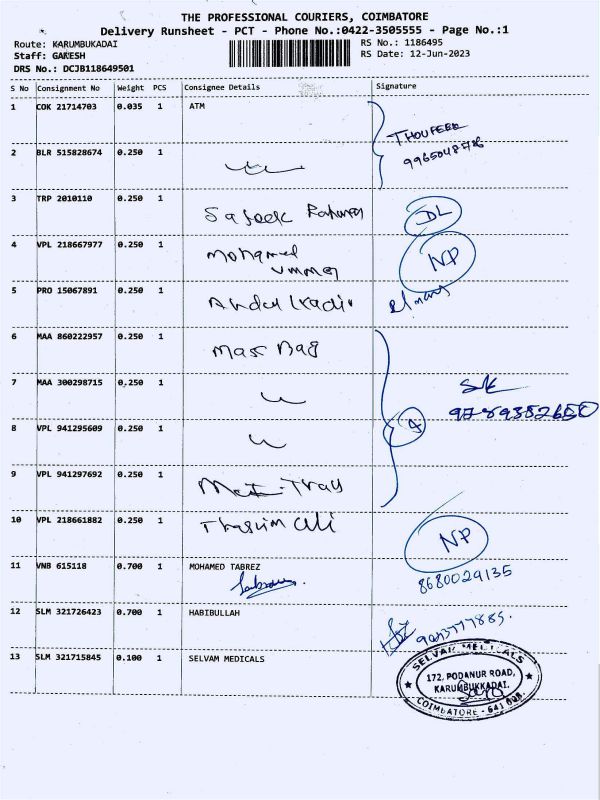 THE PROFESSIONAL COURIERS, COIMBATORE
Delivery Runsheet - PCT - Phone No.:0422-3505555 - Page No.:1
Route: KARUMBUKADAI
RS No.: 1186495
Staff: GANESH
RS Date: 12-Jun-2023
DRS No.: DCJB118649501
S No Consignment No Weight PCS Consignee Details Signature
1 COK 21714703 0.035 1 ATM
THOUFEEK
2 BLR 515828674 0.250 1
3 TRP 2010110 0.250 1 Rahman DL
4 VPL 218667977 0.250 1 Mohamed NP
Ummer
5 PRO 15067891 0.250 1 Abdul Kadir
6 MAA 860222957 0.250 1 Max Bag
7 MAA 300298715 0.250 1
8 VPL 941295609 0.250 1 4
9 VPL 941297692 0.250 1
10 VPL 218661882 0.250 1 Ali NP
8680029135
11 VNB 615118 0.700 1 MOHAMED TABREZ
12 SLM 321726423 0.700 1 HABIBULLAH
13 SLM 321715845 0.100 1 SELVAM MEDICALS
SELVAM MEDICALS
172, PODANUR ROAD,
KARUMBUKKADAI.
COIMBATORE - 641 008.